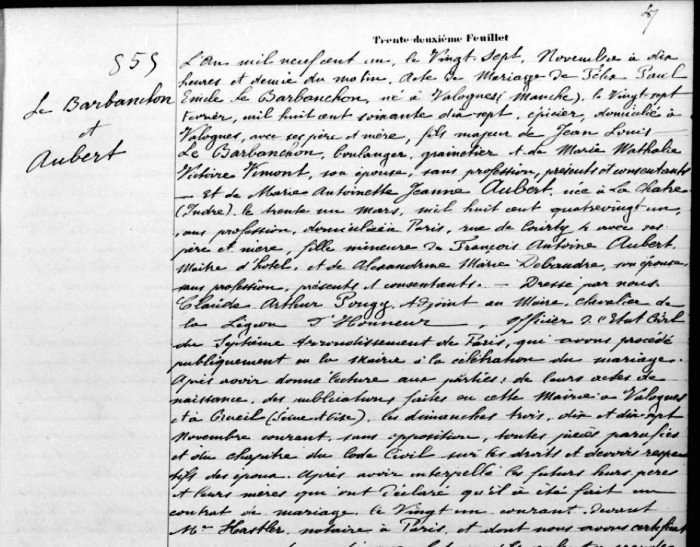 Trente-deuxième Feuillet
47
859
Le Barbanchon
et
Aubert
L'An mil neuf cent un, le Vingt-Sept, Novembre à dix
heures et demie du matin, Acte de Mariage de Félix Paul
Emile Le Barbanchon, né à Valognes (Manche), le Vingt sept
Février, mil huit cent soixante dix-sept, épicier, domicilié à
Valognes, avec ses père et mère, fils majeur de Jean Louis
Le Barbanchon, boulanger, grainetier et de Marie Nathalie
Victoire Vimont, son épouse, sans profession, présents et consentants
— Et de Marie Antoinette Jeanne Aubert, née à La Châtre
(Indre), le trente un Mars, mil huit cent quatrevingt-un,
sans profession, domiciliée à Paris, rue de 4 avec ses
père et mère, fille mineure de François Antoine Aubert
Maître d'hôtel, et de Alexandrine Marie son épouse,
sans profession, présents et consentants. — Dressé par nous
Claude Arthur Adjoint au Maire, Chevalier de
la Légion d'Honneur, Officier de l'Etat Civil
du Septième Arrondissement de Paris, qui avons procédé
publiquement en la Mairie à la célébration du mariage.
Après avoir donné lecture aux parties; de leurs actes de
naissance, des publications faites en cette Mairie à Valognes
et à (Seine et Oise), les dimanches trois, dix et dix-sept
Novembre courant, sans opposition, toutes pièces paraphées
et du chapitre du Code Civil sur les droits et devoirs respec
tifs des époux. Après avoir interpellé les futurs leurs pères
et leurs mères qui ont déclaré qu'il a été fait un
contrat de mariage, le Vingt un courant, devant
Me notaire à Paris, et dont nous avons certificat